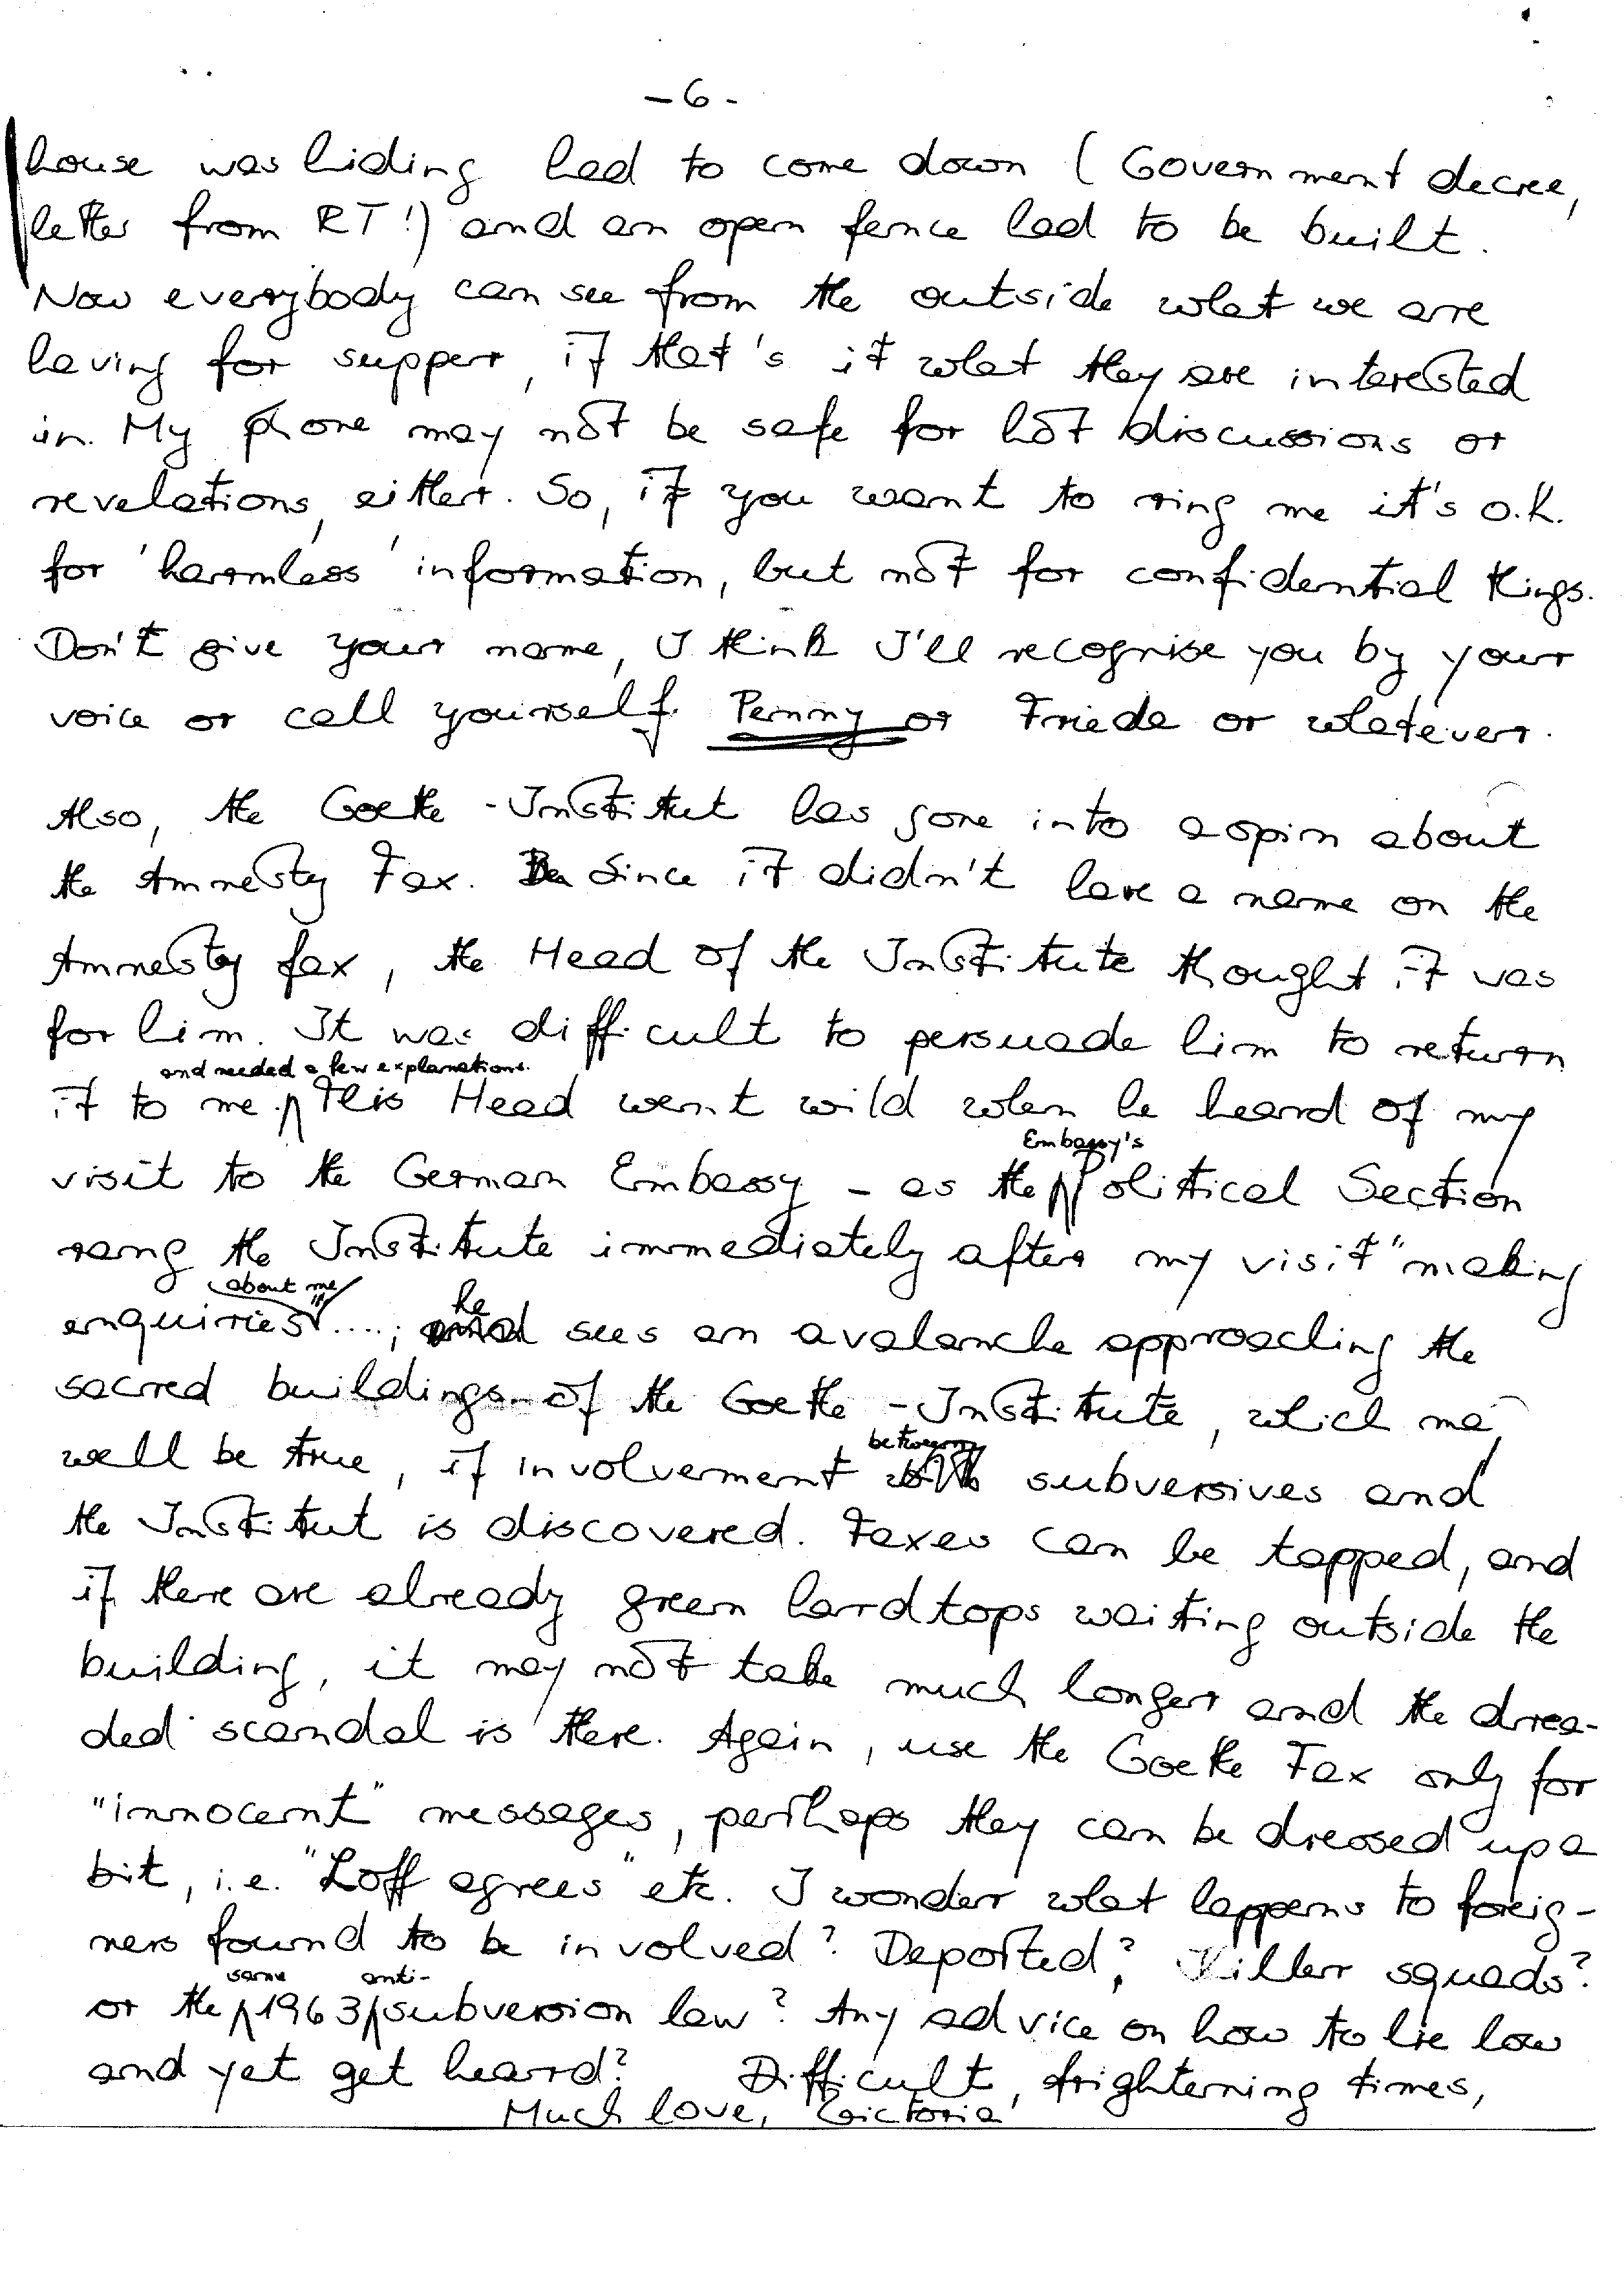 -6-
house was hiding had to come down (Government decree,
letter from RT!) and an open fence had to be built.
Now everybody can see from the outside what we are
having for supper, if that's it what they are interested
in. My phone may not be safe for hot discussions or
revelations, either. So, if you want to ring me it's o.k.
for 'harmless' information, but not for confidential things.
Don't give your name, I think I'll recognise you by your
voice or call yourself Penny or Frieda or whatever.
Also, the Goethe-Institut has gone into a spin about
the Amnesty Fax. Since it didn't have a name on the
Amnesty fax, the Head of the Institute thought it was
for him. It was difficult to persuade him to return
and needed a few explanations.
it to me. This Head went wild when he heard of my
Embassy's
visit to the German Embassy - as the Political Section
rang the Institute immediately after my visit "making
about me
enquiries"....; he sees an avalanche approaching the
sacred buildings of the Goethe-Institute, which may
between
well be true, if involvement subversives and
the Institut is discovered. Faxes can be tapped, and
if there are already green hardtops waiting outside the
building, it may not take much longer and the drea-
ded scandal is there. Again, use the Goethe Fax only for
"innocent" messages, perhaps they can be dressed up a
bit, i.e. "Loff agrees" etc. I wonder what happens to foreig-
ners found to be involved? Deported? Killer squads?
same anti-
or the 1963 subversion law? Any advice on how to lie low
and yet get heard? Difficult, frightening times,
Much love, Victoria